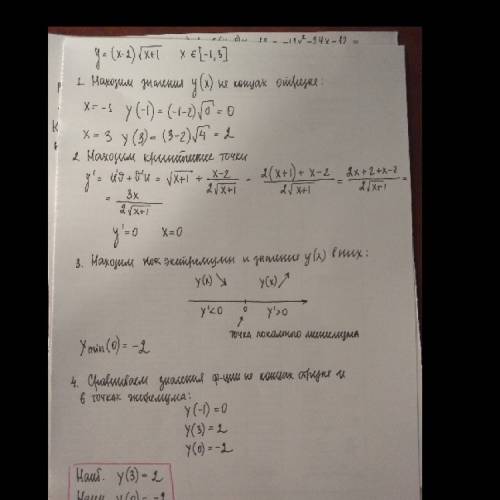 y=(x-2)√(x+1) x∈[-1,3]
1. Находим значения y(x) на концах отрезка:
x=-1 y(-1)=(-1-2)√0=0
x=3 y(3)=(3-2)√4=2
2. Находим критические точки
y'=u'v+v'u=√(x+1)+(x-2)/(2√(x+1))=(2(x+1)+x-2)/(2√(x+1))=(2x+2+x-2)/(2√(x+1))=
=3x/(2√(x+1))
y'=0 x=0
3. Находим экстремумы и значения y(x) в них:
y(x)↘ y(x)↗
y'<0 0 y'>0
точка локального минимума
ymin(0)=-2
4. Сравниваем значения ф-ции на концах отрезка и
в точках экстремума:
y(-1)=0
y(3)=2
y(0)=-2
Наиб. y(3)=2
Наим. y(0)=-2